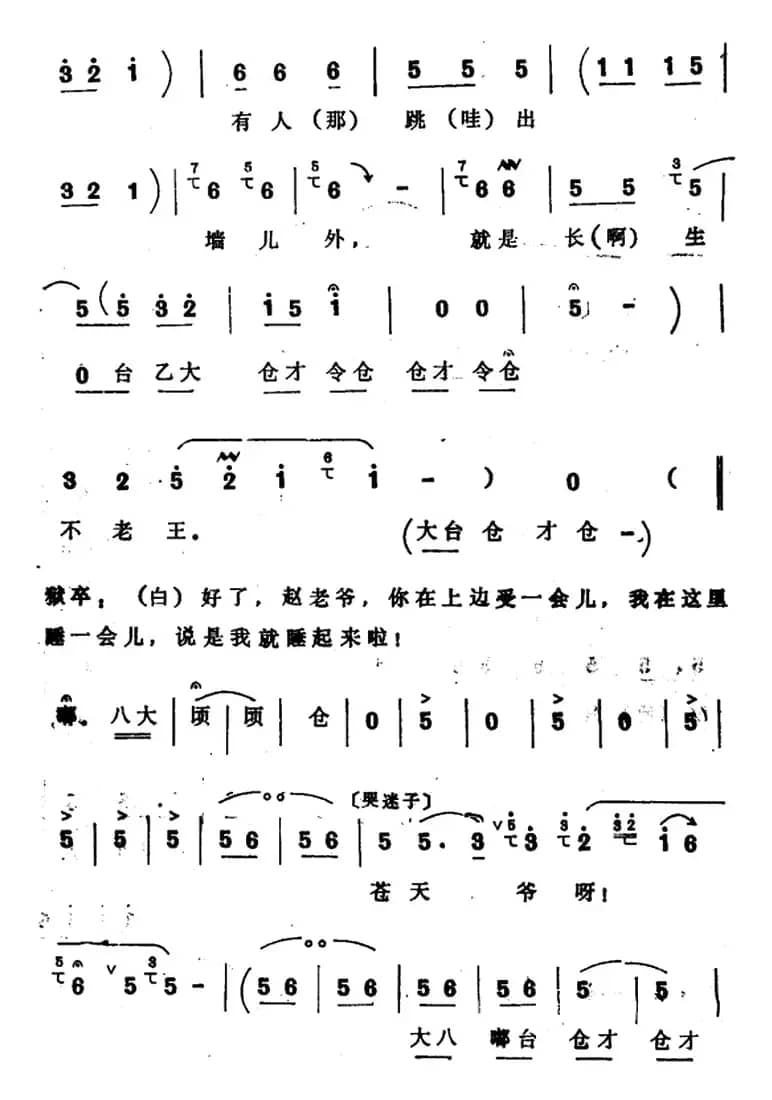 3 2 1 ) | 6 6 6 | 5 5 5 | ( 1 1 1 5 |
有人（那）跳（哇）出
3 2 1 ) | 7 6 5 6 | 5 6 - | 7 6 6 | 5 5 3 5 |
墙儿外，就是长（啊）生
5 ( 5 3 2 | 1 5 1 | 0 0 | 5 - ) |
0 台 乙大 仓才 令仓 仓才 令仓
3 2 5 2 1 6 1 - ) 0 (
不老王。（大台仓才仓-）
狱卒：（白）好了，赵老爷，你在上边受一会儿，我在这里
睡一会儿，说是我就睡起来啦！
嘟。八大 | 顷 | 顷 | 仓 | 0 | 5 | 0 | 5 | 0 | 5 |
5 | 5 | 5 | 5 6 | 5 6 | 〔哭迷子〕 5 5. 3 5 3 3 2 3 2 1 6
苍天爷呀！
5 6 5 3 5 - | ( 5 6 | 5 6 | 5 6 | 5 6 | 5 | 5 |
大八 嘟台 仓才 仓才